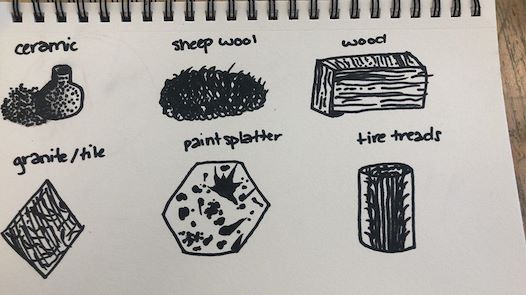 ceramic
sheep wool
wood
granite/tile
paint splatter
tire treads